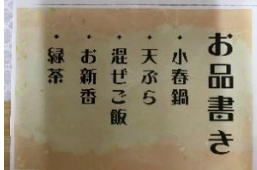 お品書き
・小春鍋
・天ぷら
・混ぜご飯
・お新香
・緑茶